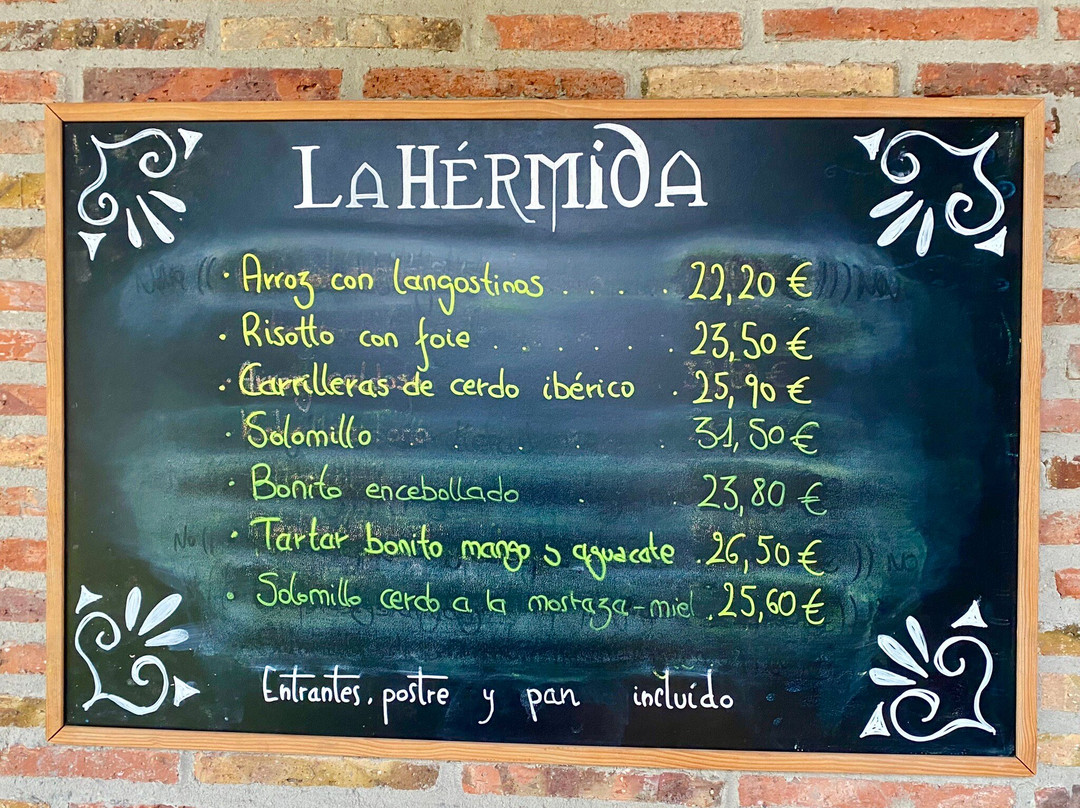 LA HÉRMIDA
· Arroz con langostinos . . . . 22,20 €
· Risotto con foie . . . . . . 23,50 €
· Carrilleras de cerdo ibérico . 25,90 €
· Solomillo . . . . 31,50 €
· Bonito encebollado . . 23,80 €
· Tartar bonito mango y aguacate . 26,50 €
· Solomillo cerdo a la mostaza-miel . 25,60 €
Entrantes, postre y pan incluído